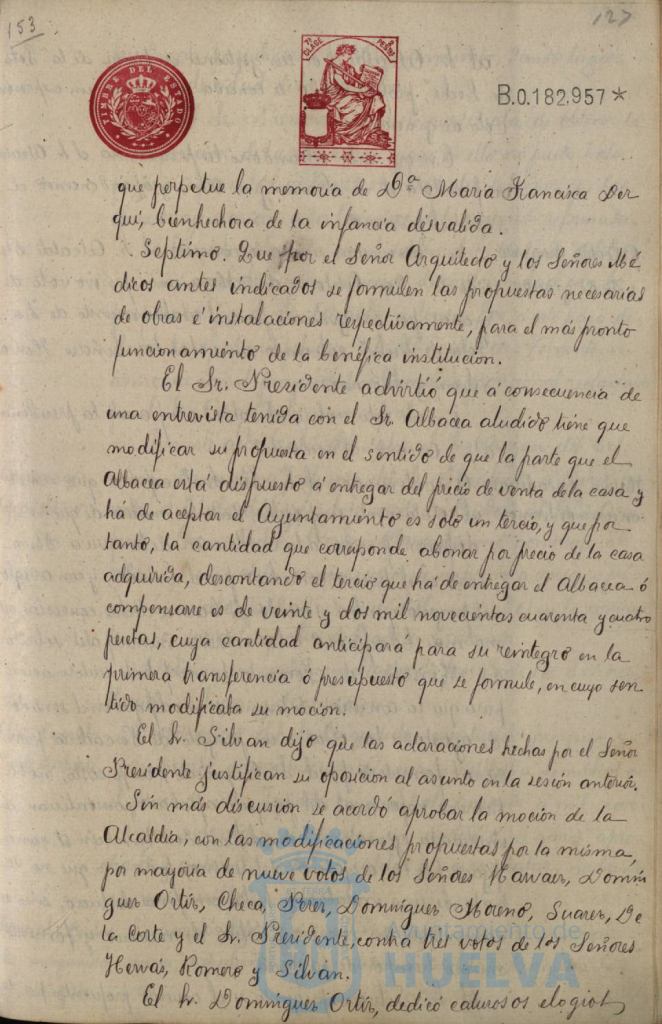 153
127
TIMBRE DEL ESTADO
7ª CLASE
PESETAS
B.0.182.957*
que perpetue la memoria de Dª Maria Francisca Der
qui, bienhechora de la infancia desvalida.
Septimo. Que por el Señor Arquitecto y los Señores Mé
dicos antes indicados se formulen las propuestas necesarias
de obras é instalaciones respectivamente, para el más pronto
funcionamiento de la benéfica institución.
El Sr. Presidente advirtió que á consecuencia de
una entrevista tenida con el Sr. Albacea aludido tiene que
modificar su propuesta en el sentido de que la parte que el
Albacea está dispuesto á entregar del precio de venta de la casa y
há de aceptar el Ayuntamiento es solo un tercio, y que por
tanto, la cantidad que corresponde abonar por precio de la casa
adquirida, descontando el tercio que há de entregar el Albacea ó
compensarse es de veinte y dos mil novecientas cuarenta y cuatro
pesetas, cuya cantidad anticipará para su reintegro en la
primera transferencia ó presupuesto que se formule, en cuyo sen
tido modificaba su moción.
El Sr. Silvan dijo que las aclaraciones hechas por el Señor
Presidente justifican su oposicion al asunto en la sesión anterior.
Sin más discusion se acordó aprobar la moción de la
Alcaldia, con las modificaciones propuestas por la misma,
por mayoria de nueve votos de los Señores Narvaez, Domin
guez Ortiz, Checa, Perez, Dominguez Moreno, Suarez, De
la Corte y el Sr. Presidente, contra tres votos de los Señores
Hervás, Romero y Silvan.
El Sr. Dominguez Ortiz, dedicó calurosos elogios
Ayuntamiento de
HUELVA